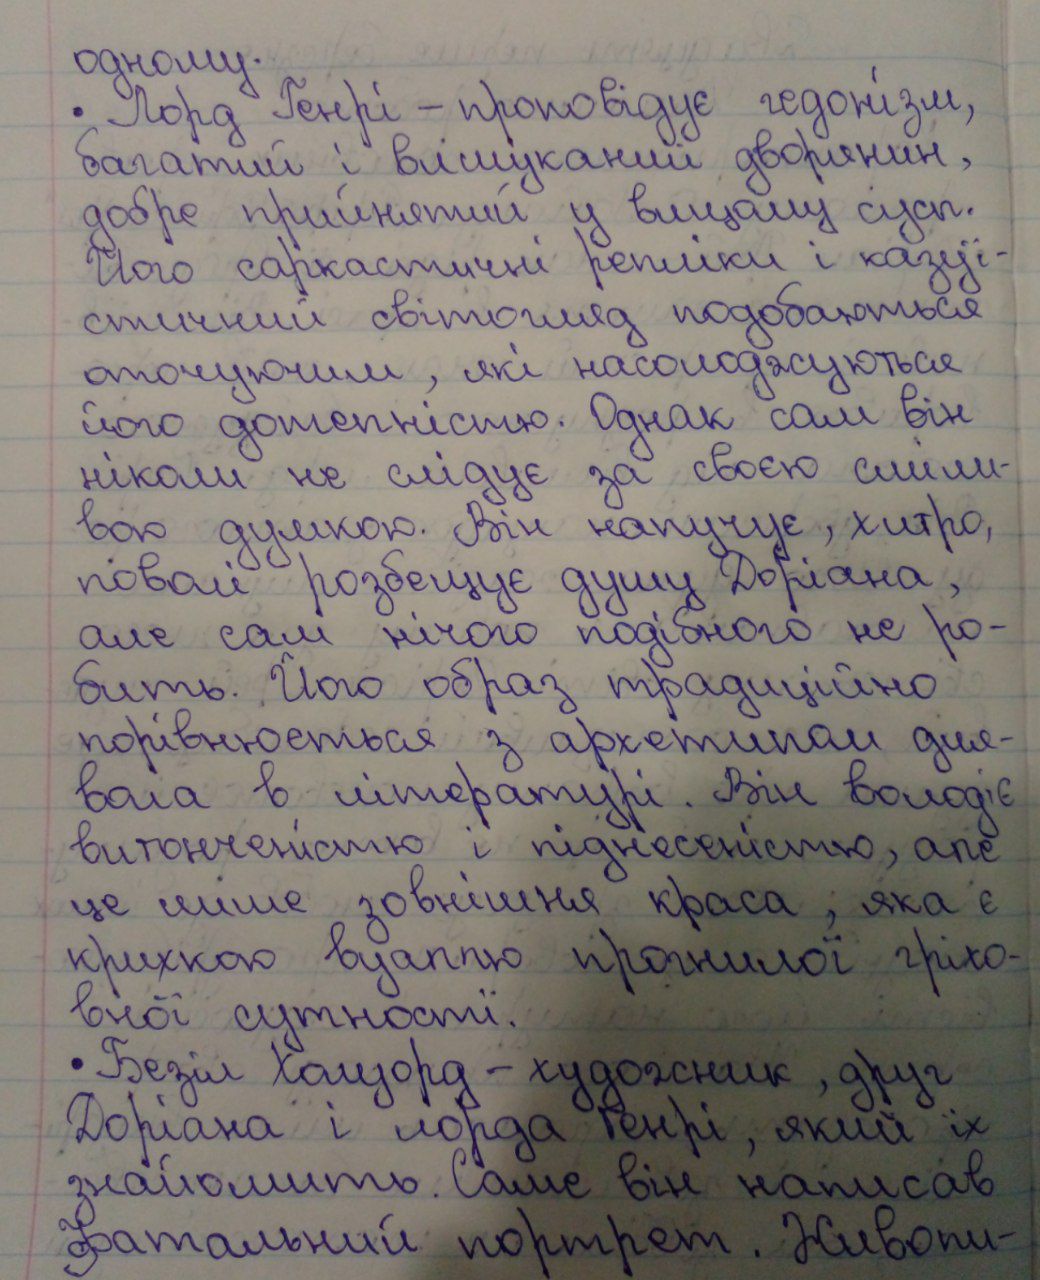 одному.
• Лорд Генрі – проповідує гедонізм,
багатий і вишуканий дворянин,
добре прийнятий у вищому сусп.
Його саркастичні репліки і казуї-
стичний світогляд подобаються
оточуючим, які насолоджуються
його дотепністю. Однак сам він
ніколи не слідує за своєю сміли-
вою думкою. Він напучує, хитро,
поволі розбещує душу Доріана,
але сам нічого подібного не ро-
бить. Його образ традиційно
порівнюється з архетипом дия-
вола в літературі. Він володіє
витонченістю і піднесеністю, але
це лише зовнішня краса, яка є
крихкою вуаллю прогнилої гріхо-
вної сутності.
• Безіл Холуорд – художник, друг
Доріана і лорда Генрі, який їх
знайомить. Саме він написав
фатальний портрет. Живопи-